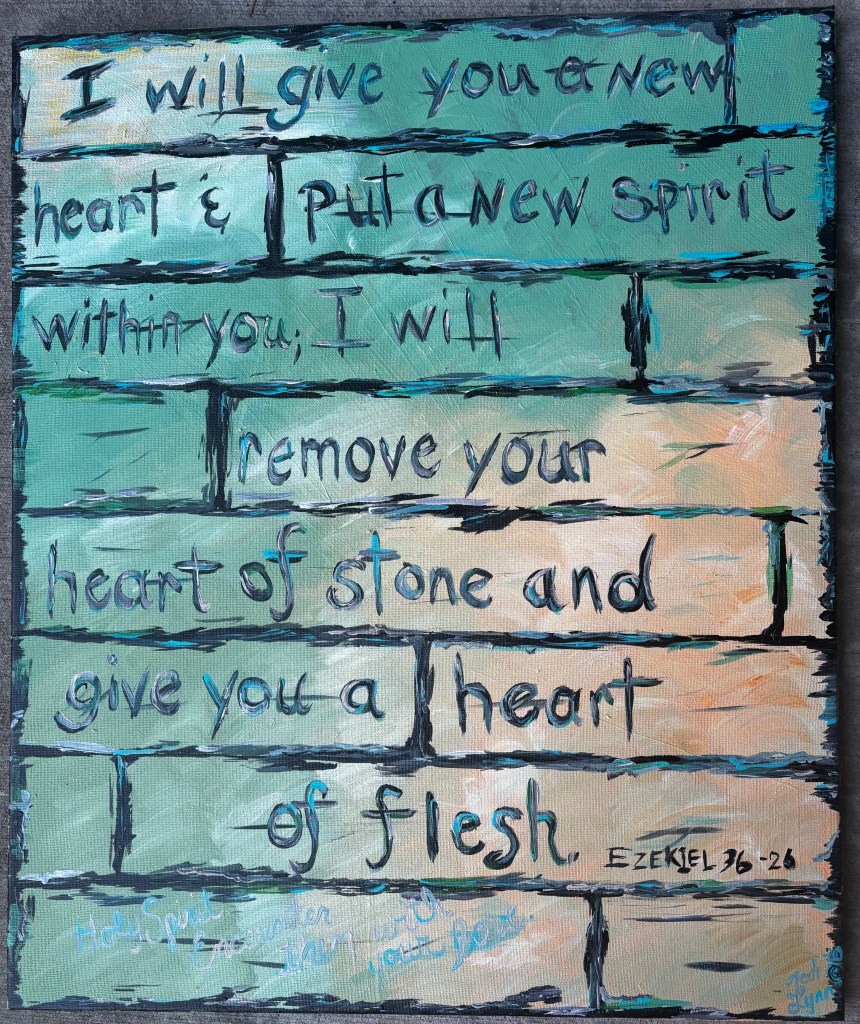 I will give you a new
heart & put a new spirit
within you; I will
remove your
heart of stone and
give you a heart
of flesh.
EZEKIEL 36-26
Holy Spirit
Encounter
them with
your love.
Lynn